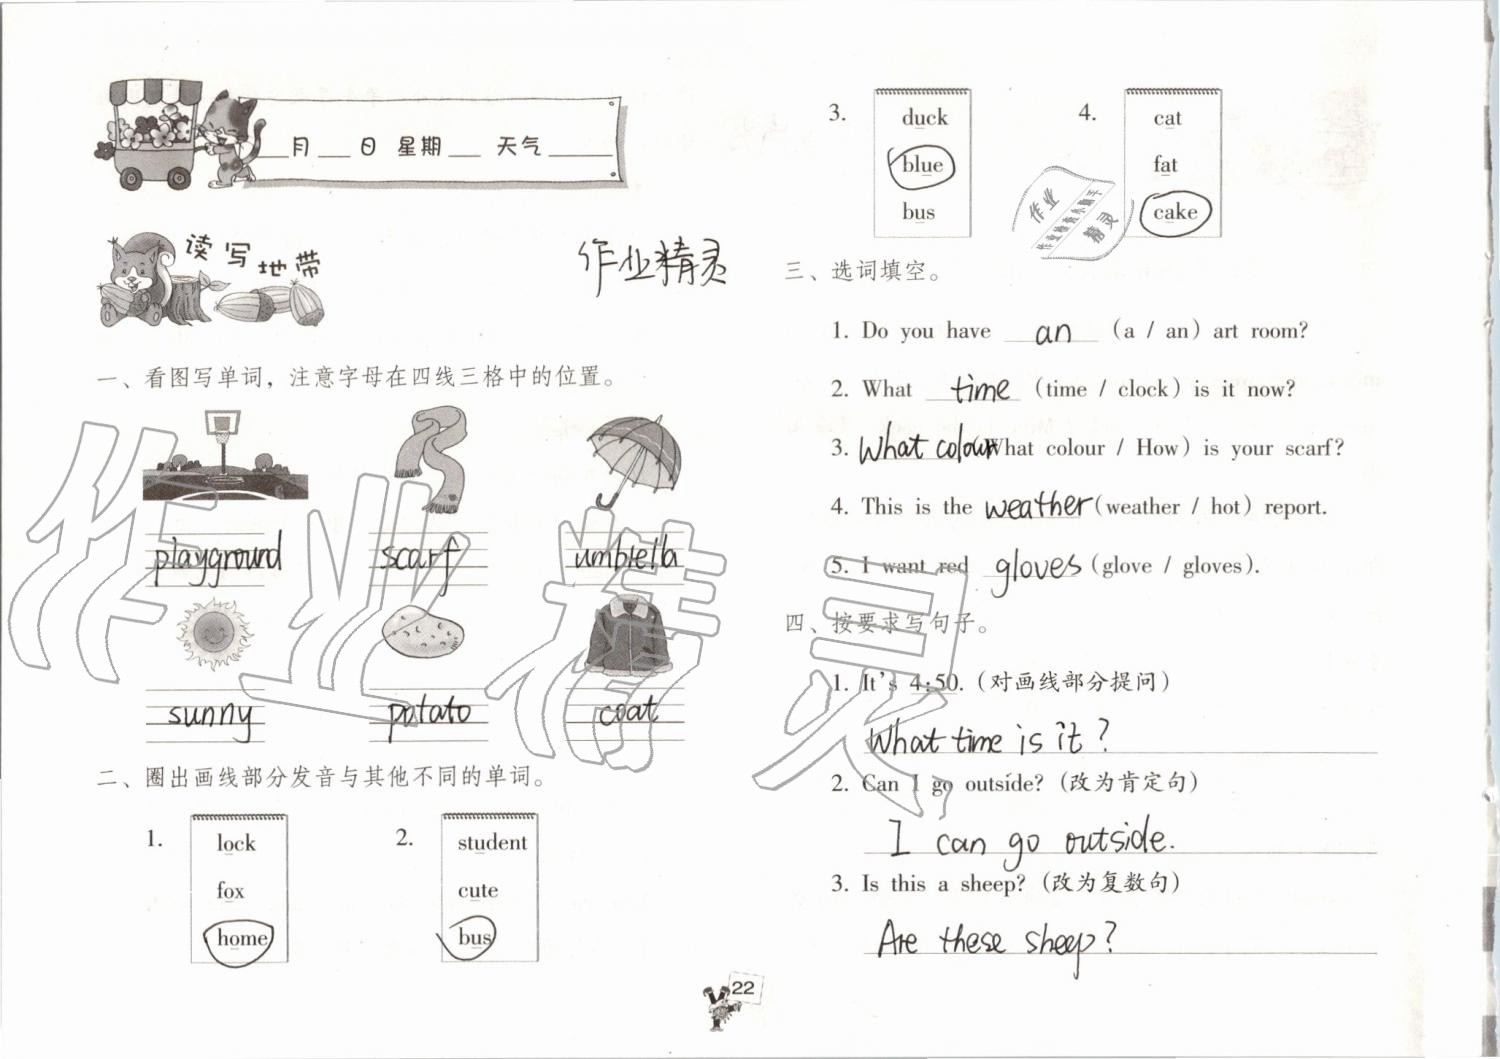 ____月____日 星期____ 天气____
读写地带
作业精灵
一、看图写单词，注意字母在四线三格中的位置。
playground scarf umbrella
sunny potato coat
二、圈出画线部分发音与其他不同的单词。
1. lock
fox
home
2. student
cute
bus
3. duck
blue
bus
4. cat
fat
cake
作业
精灵
三、选词填空。
1. Do you have an (a / an) art room?
2. What time (time / clock) is it now?
3. What colour (What colour / How) is your scarf?
4. This is the weather (weather / hot) report.
5. I want red gloves (glove / gloves).
四、按要求写句子。
1. It's 4:50. (对画线部分提问)
What time is it?
2. Can I go outside? (改为肯定句)
I can go outside.
3. Is this a sheep? (改为复数句)
Are these sheep?
作业精灵
22